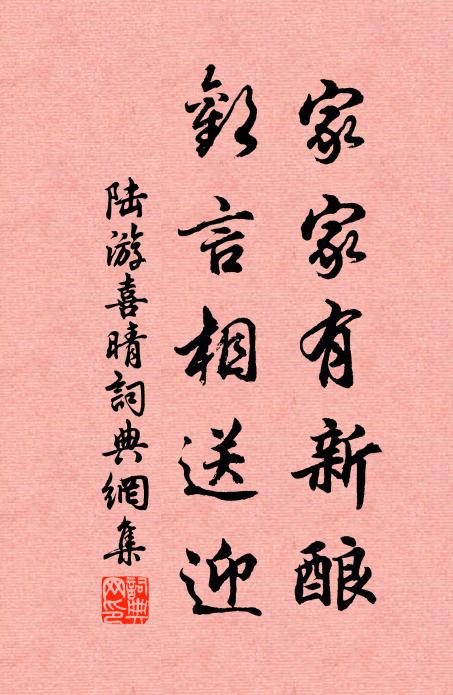 家家有新酿
歡言相送迎
陆游喜晴詞典網集
詞典网印